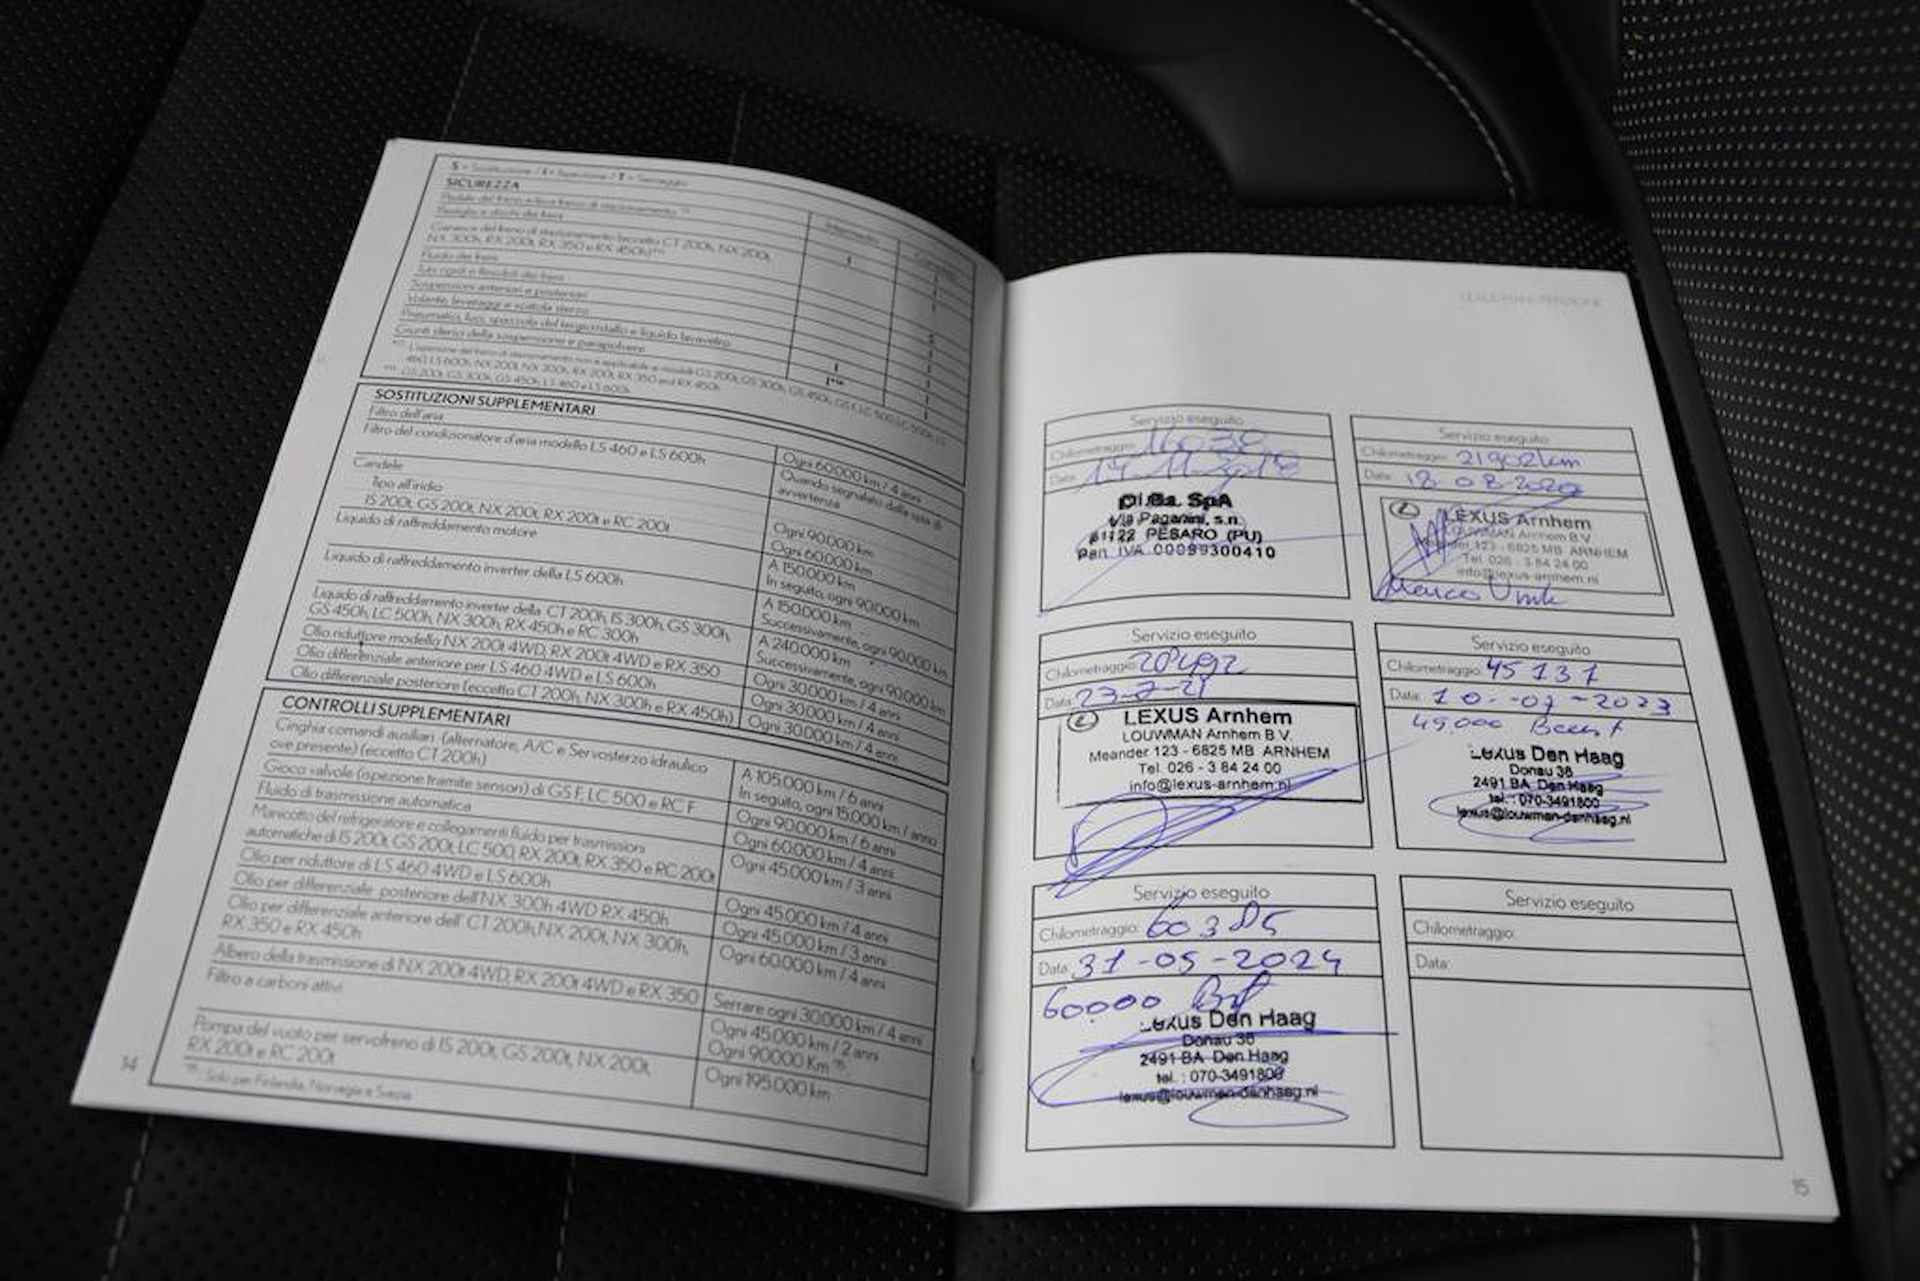 S = Sostituzione / I = Ispezione / T = Serraggio
SICUREZZA
Intermedio
Completo
Pedale del freno e leva freno di stazionamento
Pastiglie e dischi dei freni
Ganasce del freno di stazionamento (eccetto CT 200h, NX 200t,
NX 300h, RX 200t, RX 350 e RX 450h)
Fluido dei freni
Tubi rigidi e flessibili dei freni
Sospensioni anteriori e posteriori
Volante, leveraggi e scatola sterzo
Pneumatici, luci, spazzola del tergicristallo e liquido lavavetro
Giunti sferici della sospensione e parapolvere
SOSTITUZIONI SUPPLEMENTARI
Filtro dell'aria Ogni 60.000 km / 4 anni
Filtro del condizionatore d'aria modello LS 460 e LS 600h Quando segnalato dalla spia di
avvertenza
Candele
Tipo all'iridio Ogni 90.000 km
IS 200t, GS 200t, NX 200t, RX 200t e RC 200t Ogni 60.000 km
Liquido di raffreddamento motore A 150.000 km
In seguito, ogni 90.000 km
Liquido di raffreddamento inverter della LS 600h A 150.000 km
Successivamente, ogni 90.000 km
Liquido di raffreddamento inverter della CT 200h, IS 300h, GS 300h, A 240.000 km
GS 450h, LC 500h, NX 300h, RX 450h e RC 300h Successivamente, ogni 90.000 km
Olio riduttore modello NX 200t 4WD, RX 200t 4WD e RX 350 Ogni 30.000 km / 4 anni
Olio differenziale anteriore per LS 460 4WD e LS 600h Ogni 30.000 km / 4 anni
Olio differenziale posteriore (eccetto CT 200h, NX 300h e RX 450h) Ogni 30.000 km / 4 anni
CONTROLLI SUPPLEMENTARI
Cinghia comandi ausiliari (alternatore, A/C e Servosterzo idraulico A 105.000 km / 6 anni
ove presente) (eccetto CT 200h) In seguito, ogni 15.000 km / anno
Gioco valvole (ispezione tramite sensori) di GS F, LC 500 e RC F Ogni 90.000 km / 6 anni
Fluido di trasmissione automatica Ogni 60.000 km / 4 anni
Manicotto del refrigeratore e collegamenti fluido per trasmissioni Ogni 45.000 km / 3 anni
automatiche di IS 200t, GS 200t, LC 500, RX 200t, RX 350 e RC 200t
Olio per riduttore di LS 460 4WD e LS 600h Ogni 45.000 km / 4 anni
Olio per differenziale posteriore dell'NX 300h 4WD RX 450h Ogni 45.000 km / 3 anni
Olio per differenziale anteriore dell' CT 200h, NX 200t, NX 300h, Ogni 60.000 km / 4 anni
RX 350 e RX 450h
Albero della trasmissione di NX 200t 4WD, RX 200t 4WD e RX 350 Serrare ogni 30.000 km / 4 anni
Filtro a carboni attivi Ogni 45.000 km / 2 anni
Ogni 90000 Km
Pompa del vuoto per servofreno di IS 200t, GS 200t, NX 200t, Ogni 195.000 km
RX 200t e RC 200t
Solo per Finlandia, Norvegia e Svezia
14
Servizio eseguito
Chilometraggio: 16030
Data: 14-11-2018
Di.Ba. SpA
Via Paganini, s.n.
61122 PESARO (PU)
Part. IVA 00099300410
Servizio eseguito
Chilometraggio: 21902km
Data: 18-08-2020
LEXUS Arnhem
LOUWMAN Arnhem B.V.
Meander 123 - 6825 MB ARNHEM
Tel. 026 - 3 84 24 00
info@lexus-arnhem.nl
Servizio eseguito
Chilometraggio: 28492
Data: 23-7-21
LEXUS Arnhem
LOUWMAN Arnhem B.V.
Meander 123 - 6825 MB ARNHEM
Tel. 026 - 3 84 24 00
info@lexus-arnhem.nl
Servizio eseguito
Chilometraggio: 45131
Data: 10-07-2023
45.000 Beurt
Lexus Den Haag
Donau 36
2491 BA Den Haag
tel. : 070-3491800
lexus@louwman-denhaag.nl
Servizio eseguito
Chilometraggio: 60385
Data: 31-05-2024
60.000
Lexus Den Haag
Donau 36
2491 BA Den Haag
tel. : 070-3491800
lexus@louwman-denhaag.nl
Servizio eseguito
Chilometraggio:
Data:
15